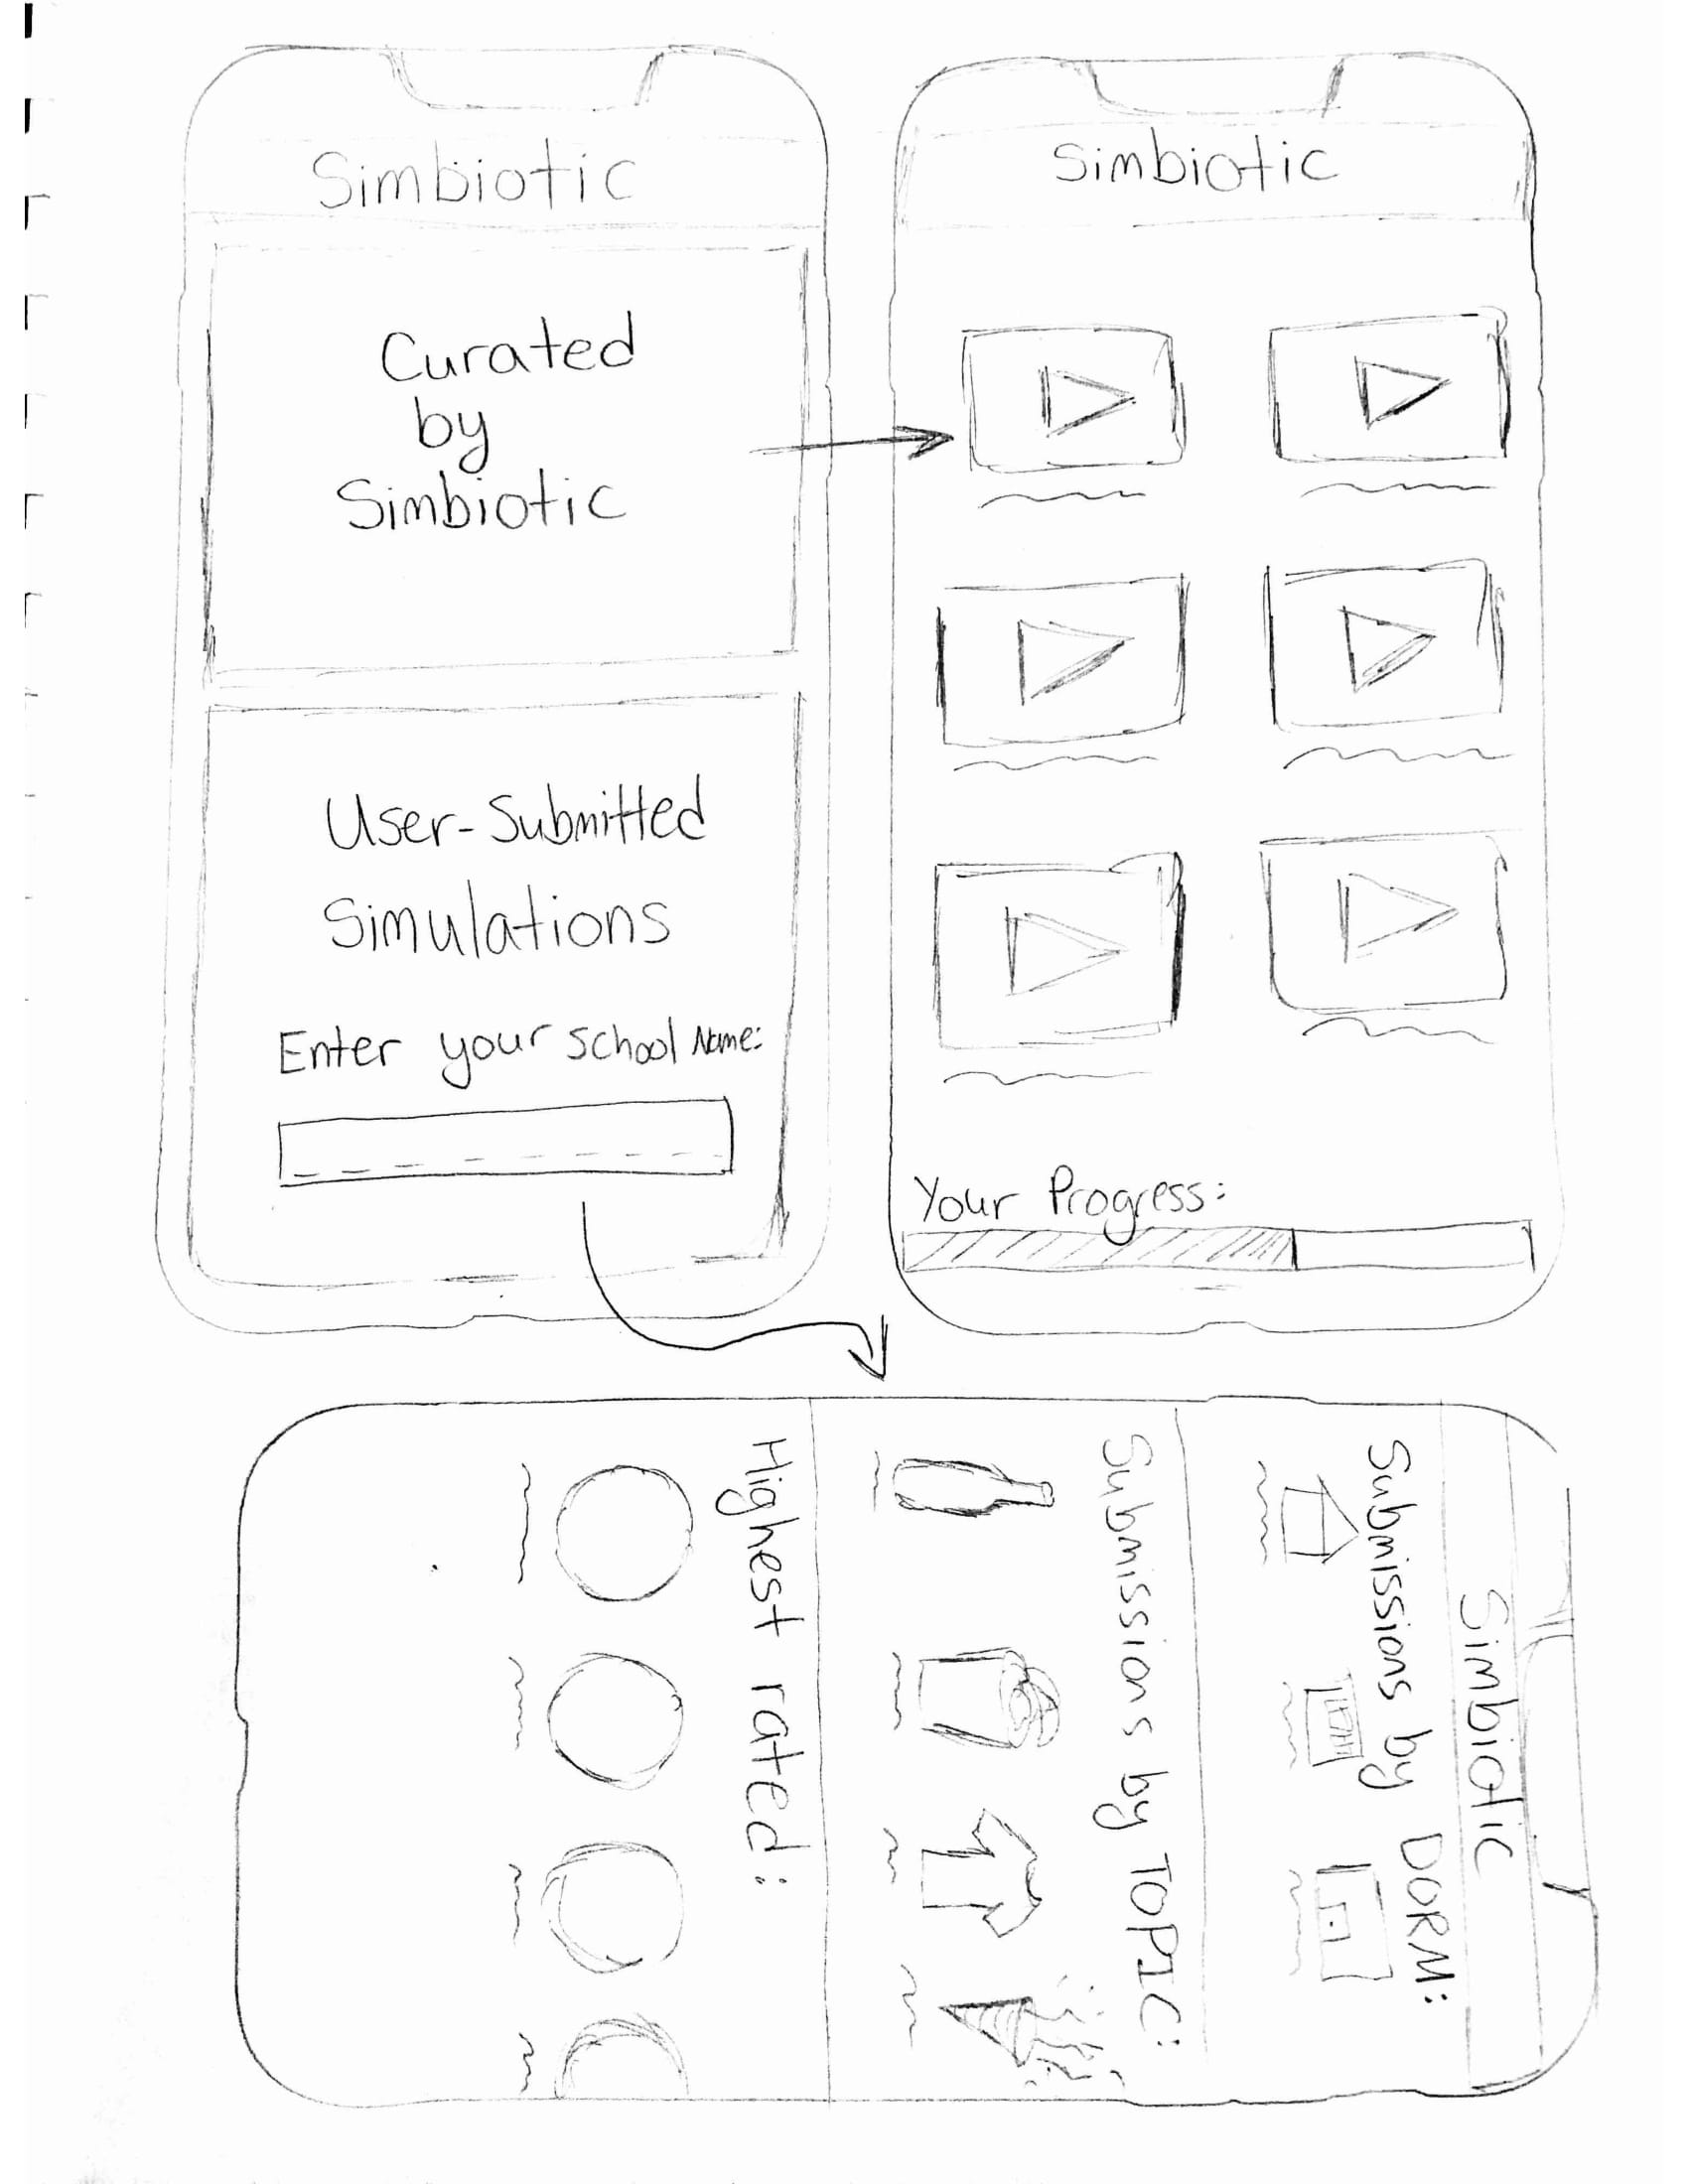 Simbiotic
Curated
by
Simbiotic
User-Submitted
Simulations
Enter your school Name:
Simbiotic
Your Progress:
Simbiotic
Submissions by DORM:
Submissions by TOPIC:
Highest rated: